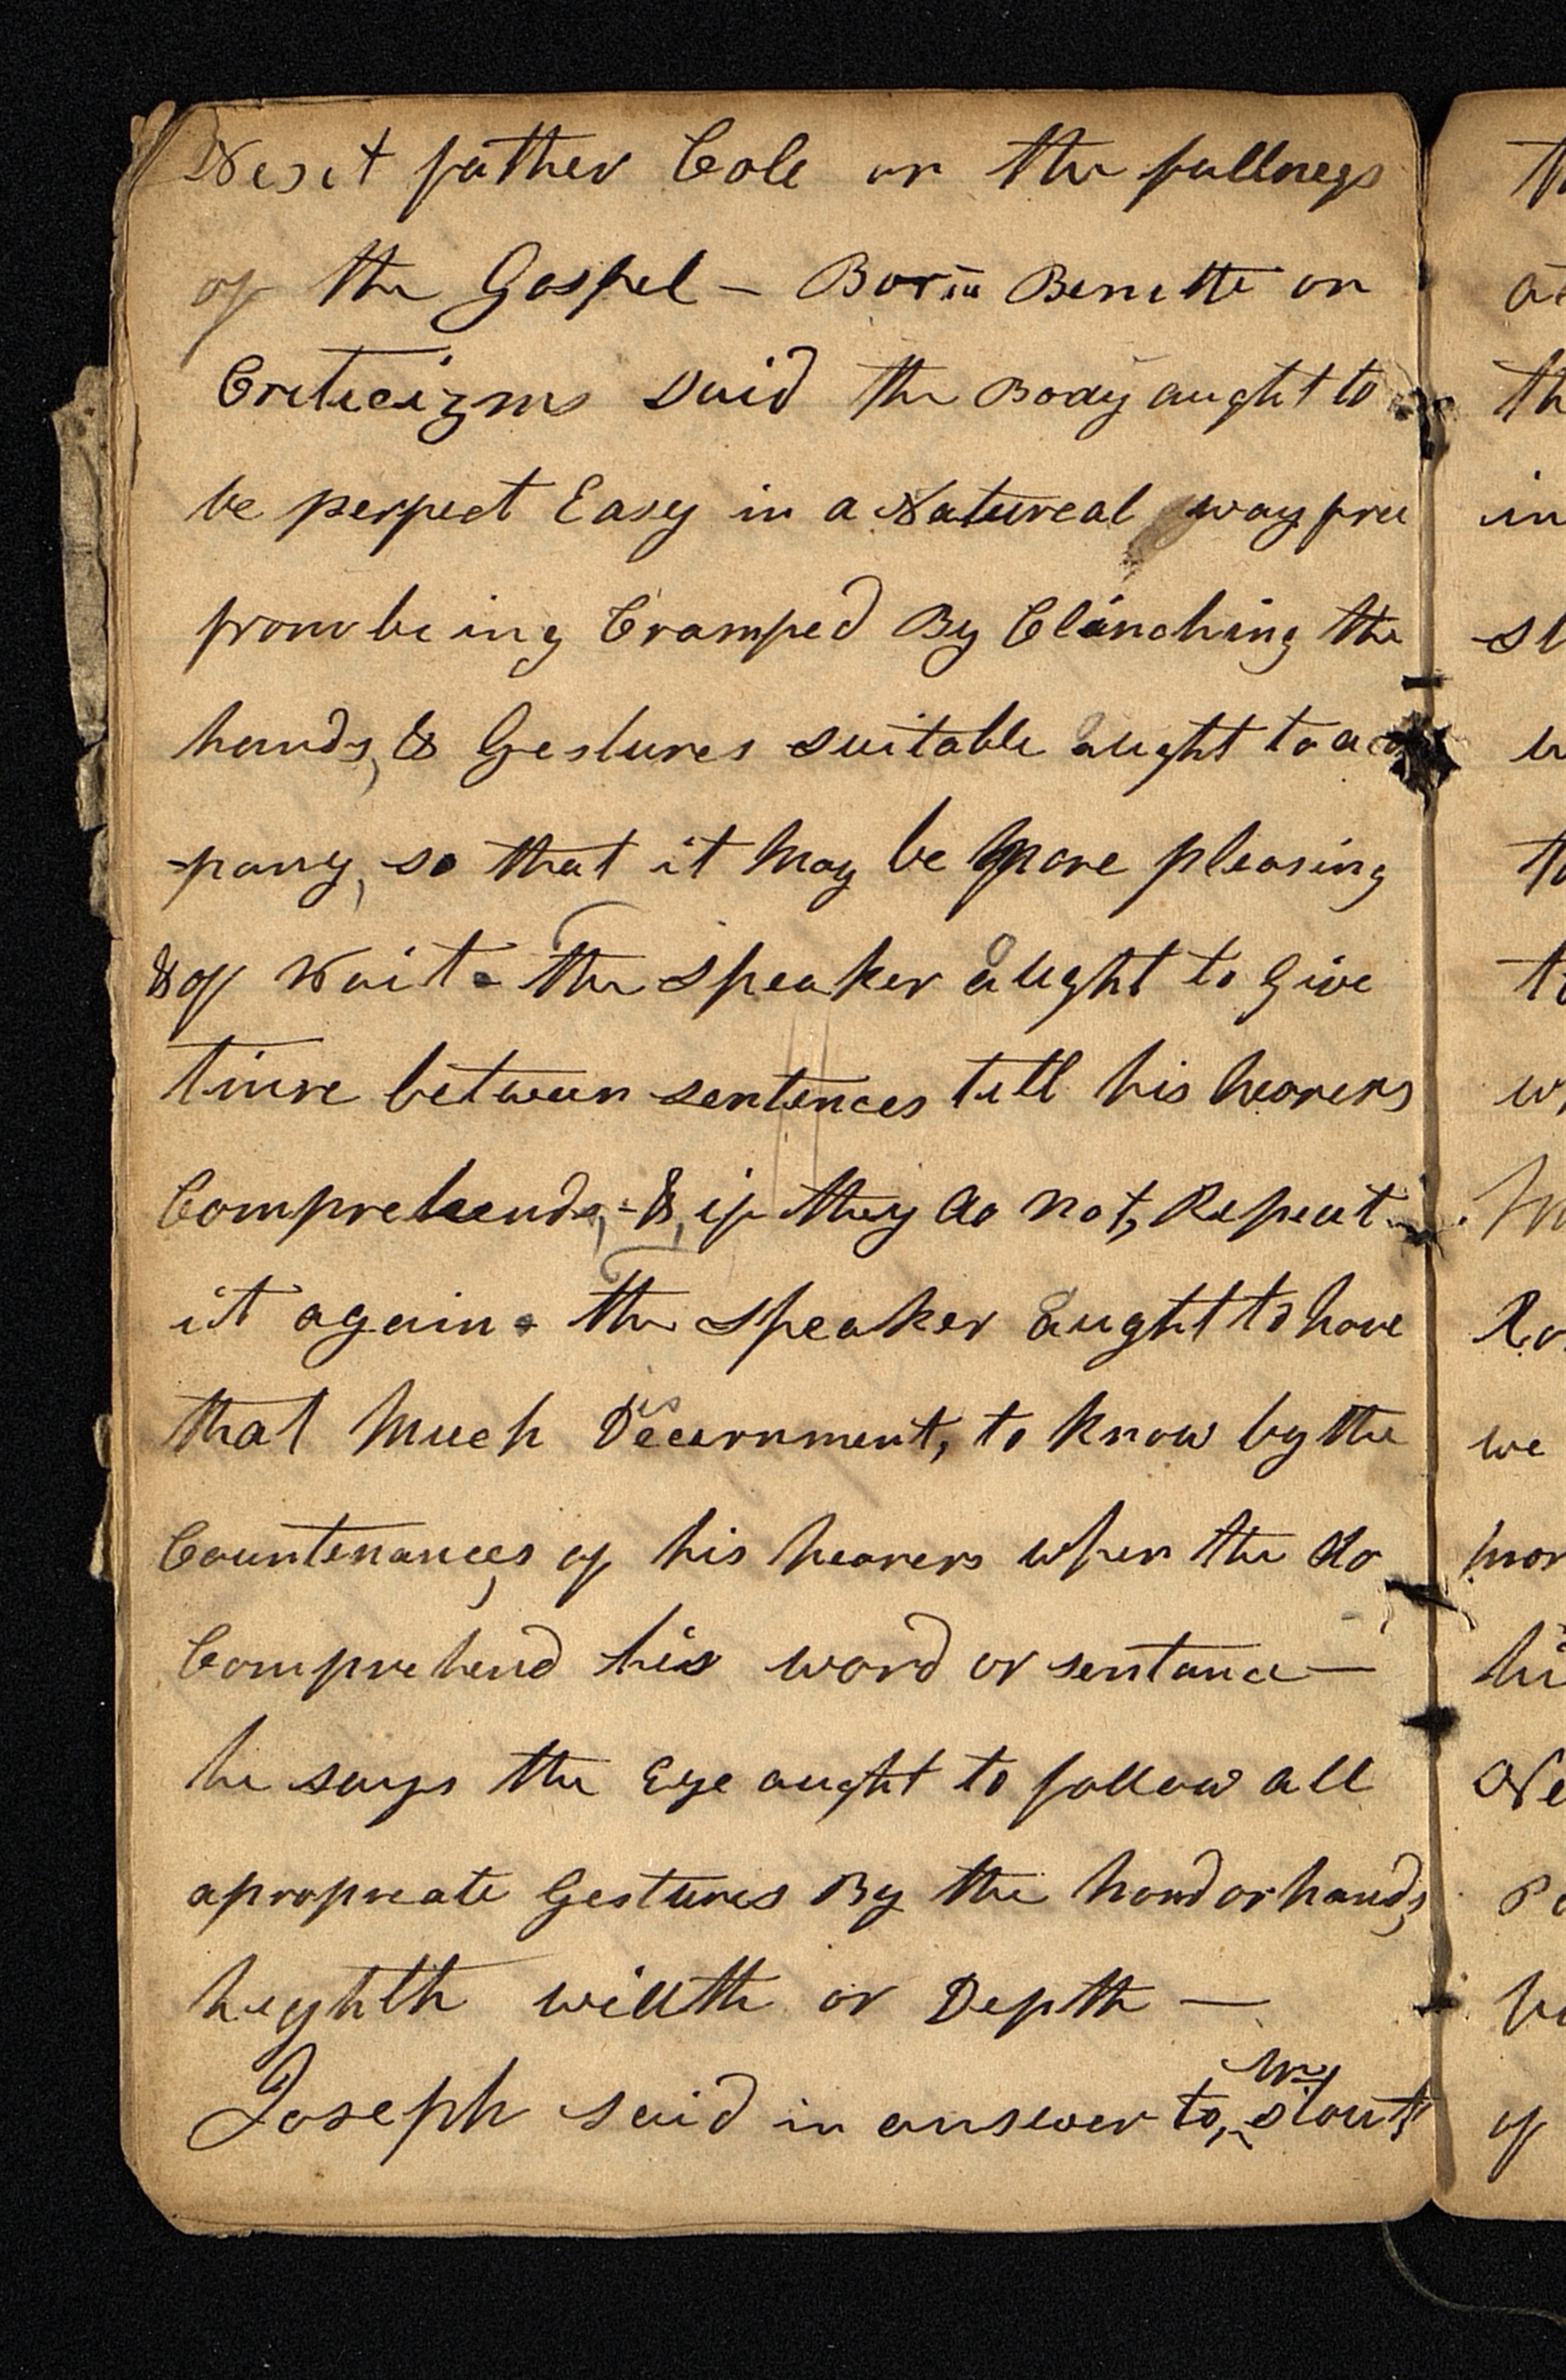 Next father Cole on the fullness
of the Gospel – Benette on
Criticizms said the Body aught to
be perfect Easy in a Natureal way free
from being Cramped By Clinching the
hands, & Gestures suitable aught to
-pany, so that it May be More pleasing
& of Wait. The speaker aught to Give
time between sentences till his hearers
Comprehends, & if they do not, Repeat
it again. The speaker aught to have
that Much Decernment, to know by the
Countenances of his hearers when the do
Comprehend his word or sentance —
he says the Eye aught to follow all
apropreate Gestures By the hand or hands,
heighth width or Depth —
Joseph said in answer to, Mr Stout